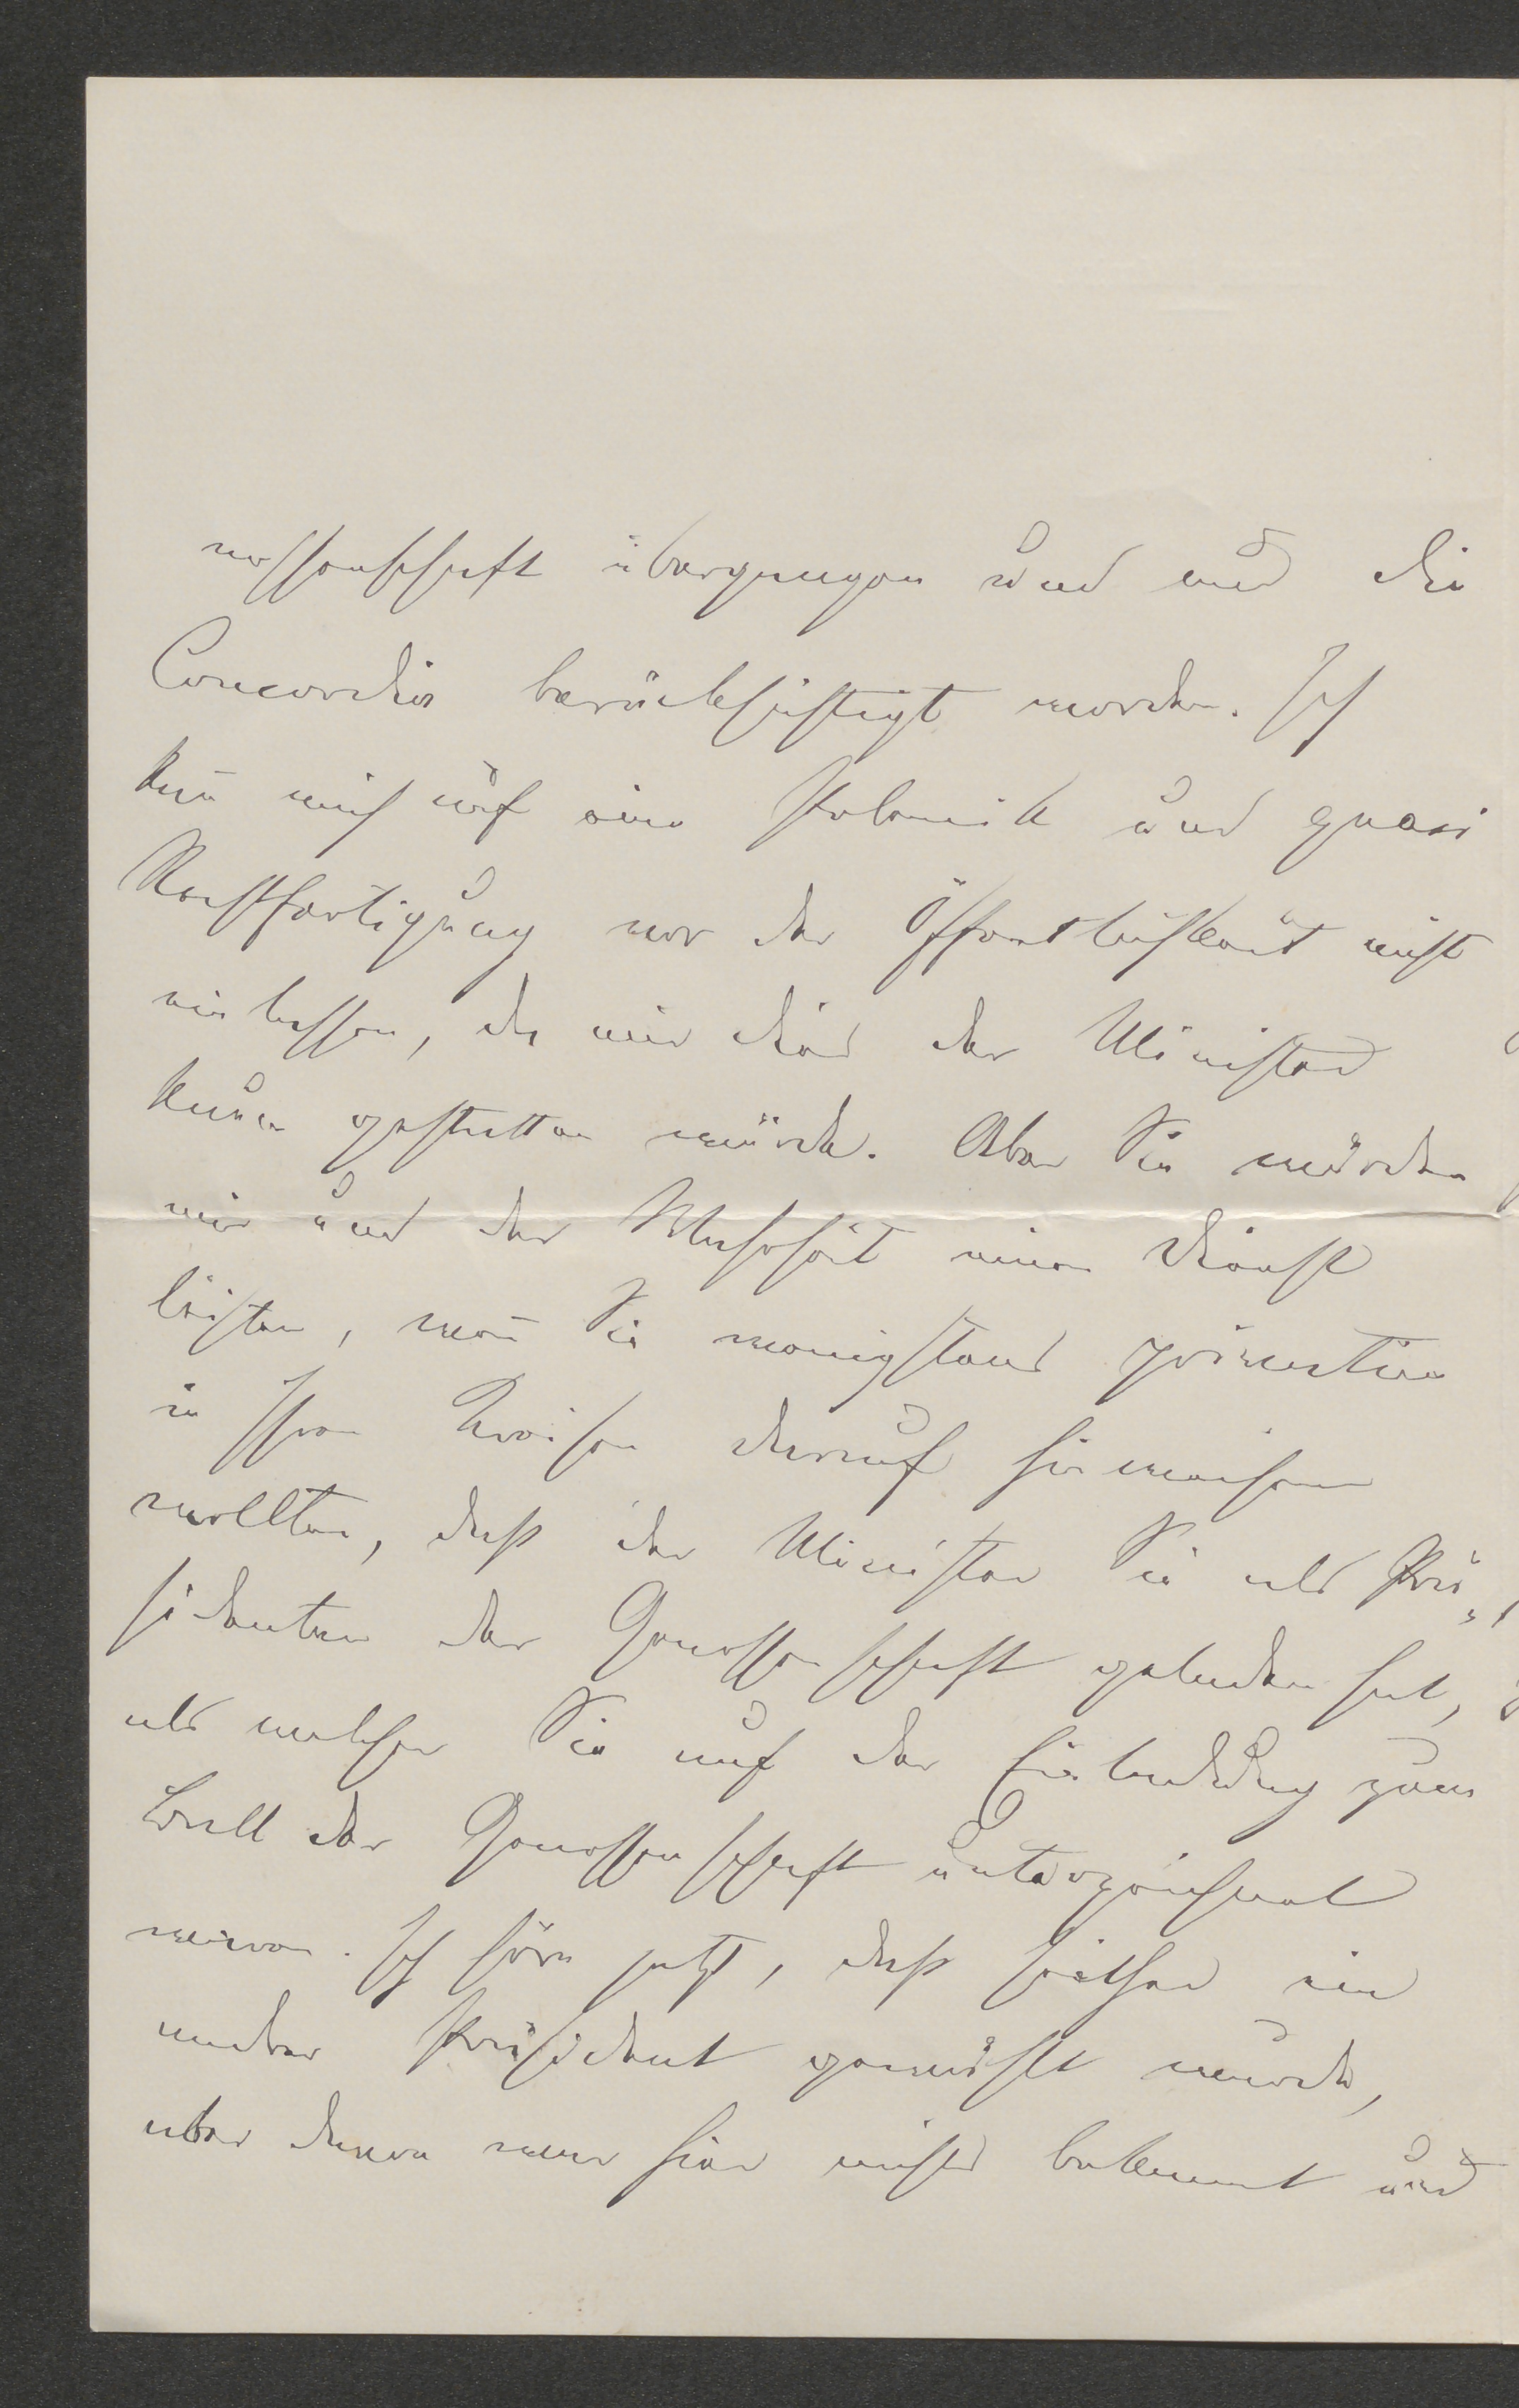 nossenschaft übergangen und nur die
Concordia berücksichtigt worden. Ich
kañ mich auf eine Polemik und quasi
Rechtfertigung vor der Öffentlichkeit nicht
einlassen, da mir dies der Minister
kaum gestatten würde. Aber Sie würden
mir und der Wahrheit einen Dienst
leisten, weñ Sie wenigstens privatim
in Ihren Kreisen darauf hinweisen
wollten, daß der Minister Sie als Prä„
sidenten der Genossenschaft geladen hat,
als welcher Sie auf der Einladung zum
Ball der Genossenschaft unterzeichnet
waren. Ich höre jetzt, daß seither ein
andrer Präsident gewählt wurde,
aber davon war hier nichts bekannt und